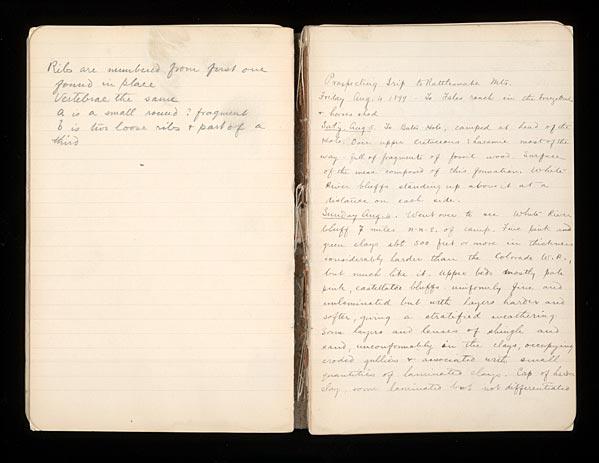 Ribs are numbered from first one
found in place
Vertebrae the same
a is a small round ? fragment
b is two loose ribs & part of a
third
Prospecting Trip to Rattlesnake Mts.
Friday Aug. 4 1899 - To Fales ranch in the
& horse shod
Saty. Aug 5. To Bates Hole, camped at head of the
Hole. Over upper Cretaceous most of the
way - full of fragments of fossil wood. Surface
of the mesa composed of this formation. White
River bluffs standing up above it at a
distance on each side.
Sunday Aug 6. Went over to see White River
bluff 7 miles n.n.E. of camp. Fine pink and
green clays abt 500 feet or more in thickness
considerably harder than the Colorado W.R.,
but much like it. Upper beds mostly pale
pink, castellated bluffs - uniformly fine and
unlaminated but with layers harder and
softer, giving a stratified weathering
Some layers and lenses of shingle and
sand, unconformably in the clays, occupying
eroded gullies & associated with small
quantities of laminated clays. Cap of harder
clay, some laminated but not differentiated